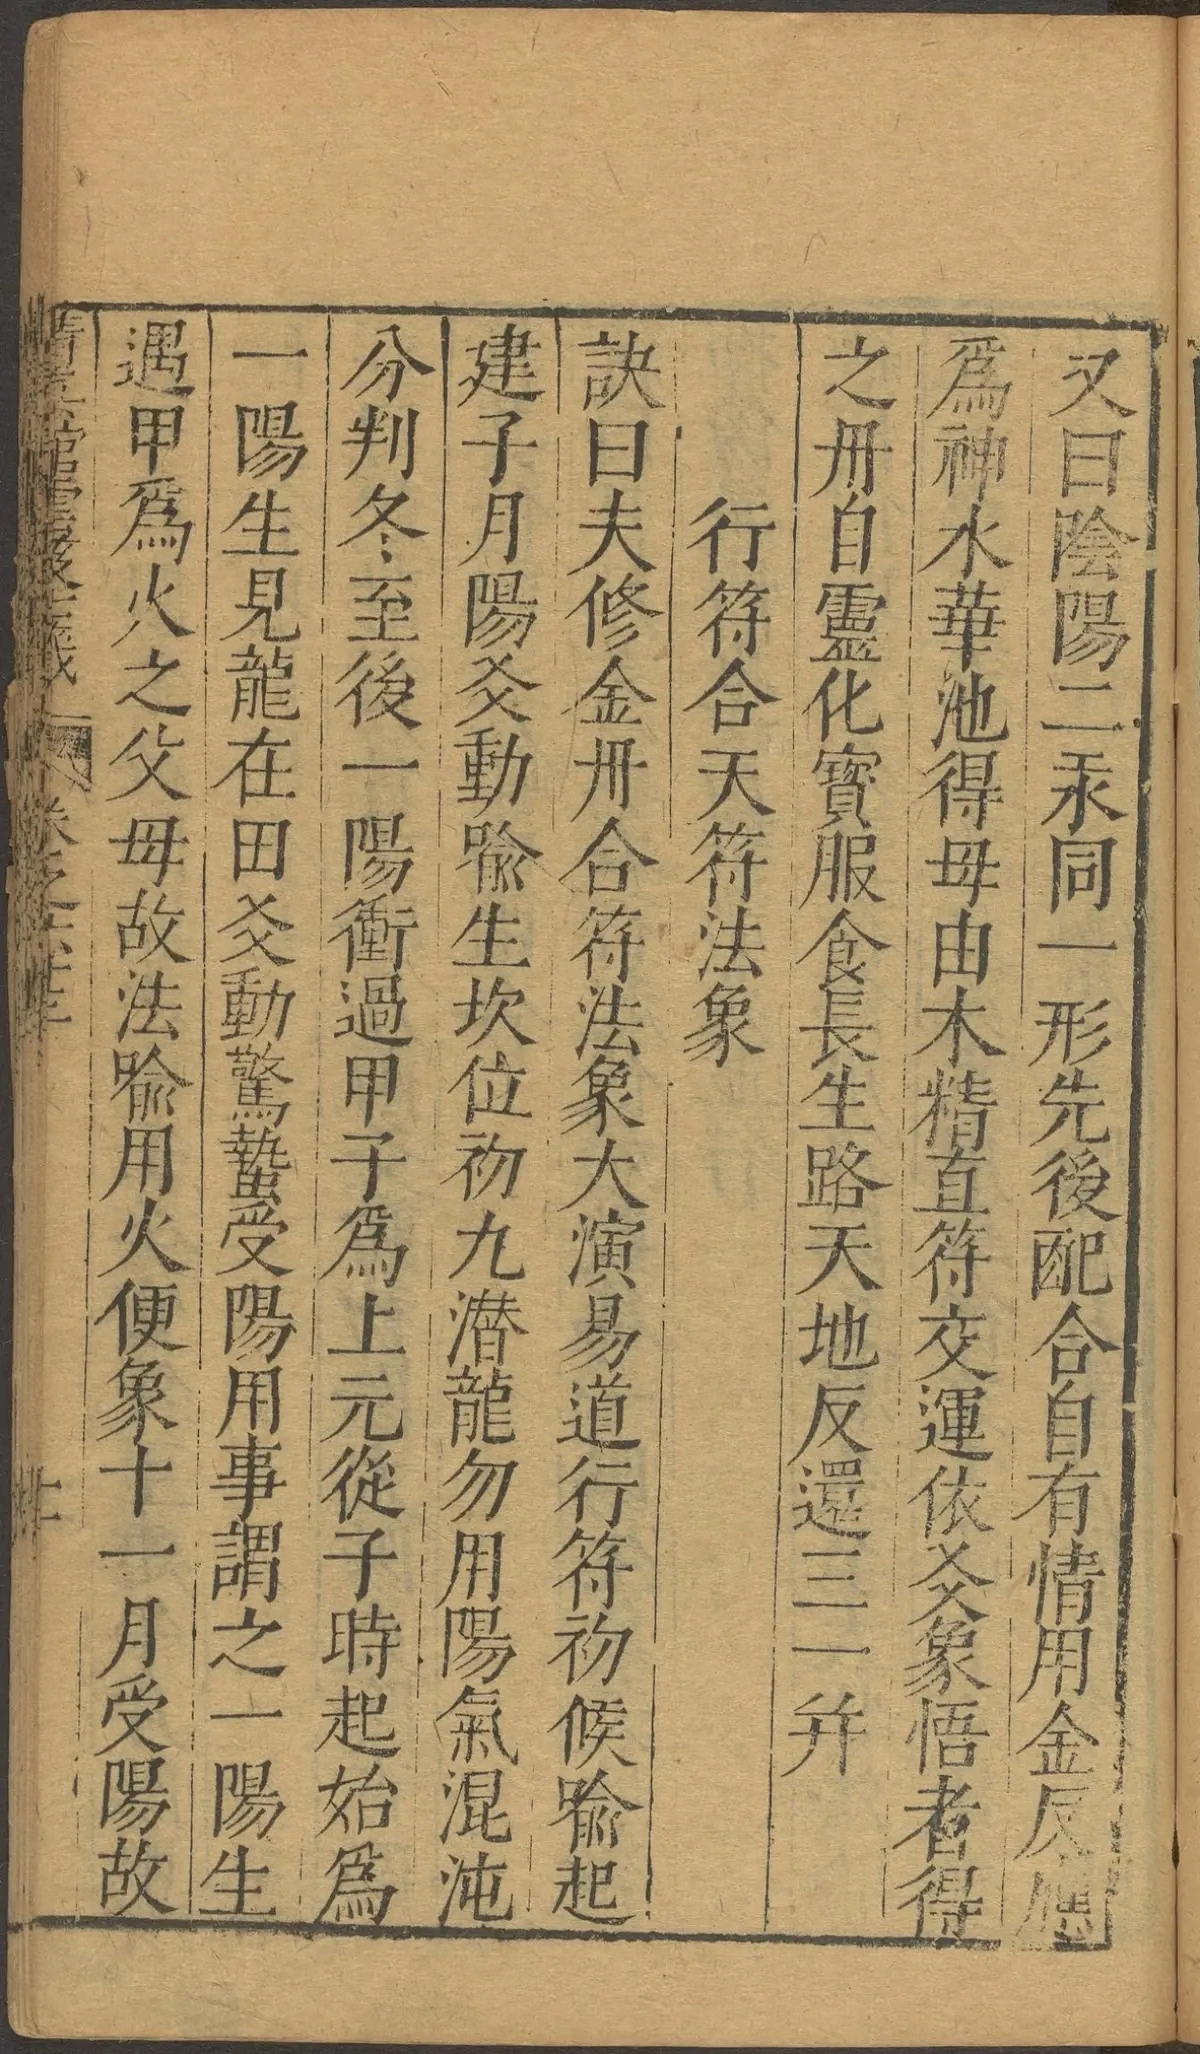 又曰陰陽二汞同一形先後配合自有情用金反應
爲神水華池得母由木精直符交運依爻象悟者得
之丹自靈化寶服食長生路天地反還三一并
行符合天符法象
訣曰夫修金丹合符法象大演易道行符初候喻起
建子月陽爻動喻生坎位初九潜龍勿用陽氣混沌
分判冬至後一陽衝過甲子爲上元從子時起始爲
一陽生見龍在田爻動驚蟄受陽用事謂之一陽生
遇甲爲火之父母故法喻用火便象十一月受陽故